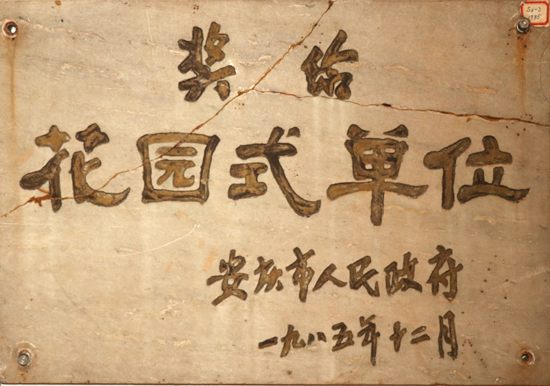 奖给
花园式单位
安庆市人民政府
一九八五年十二月